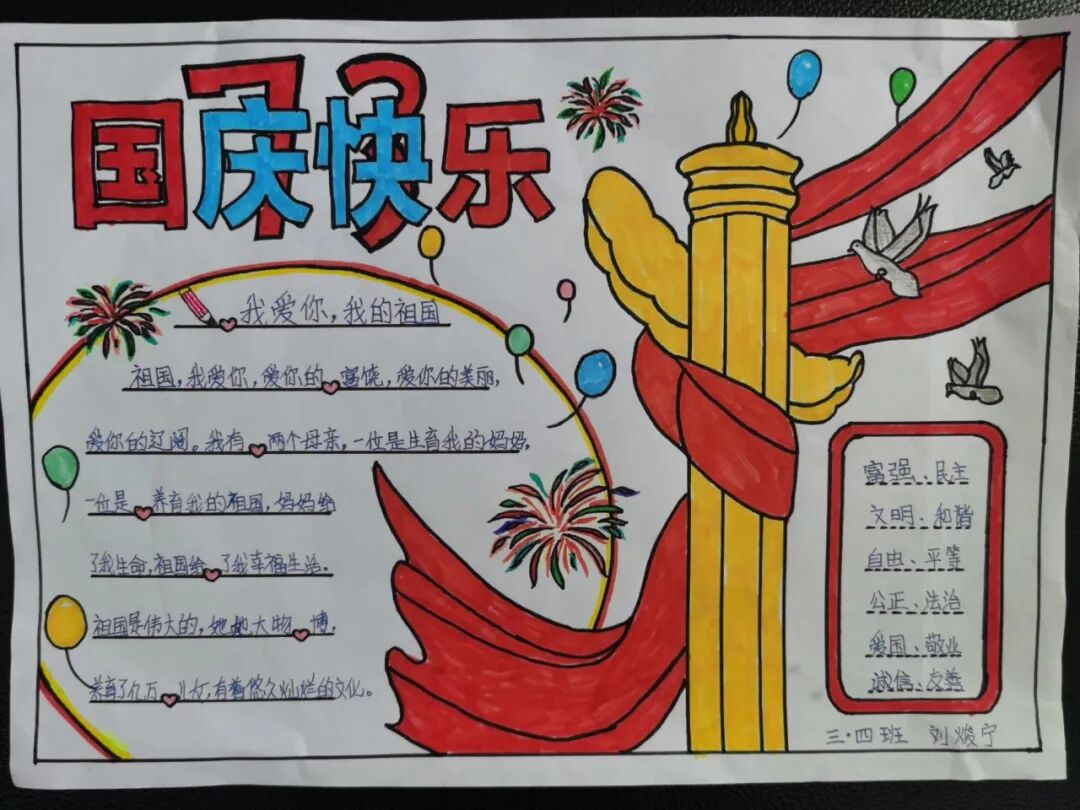 国庆快乐
我爱你，我的祖国
祖国，我爱你，爱你的富饶，爱你的美丽，
爱你的辽阔。我有两个母亲，一位是生育我的妈妈，
一位是养育我的祖国，妈妈给
了我生命，祖国给了我幸福生活。
祖国是伟大的，她地大物博，
养育了亿万儿女，有着悠久灿烂的文化。
富强、民主
文明、和谐
自由、平等
公正、法治
爱国、敬业
诚信、友善
三·四班 刘焌宁